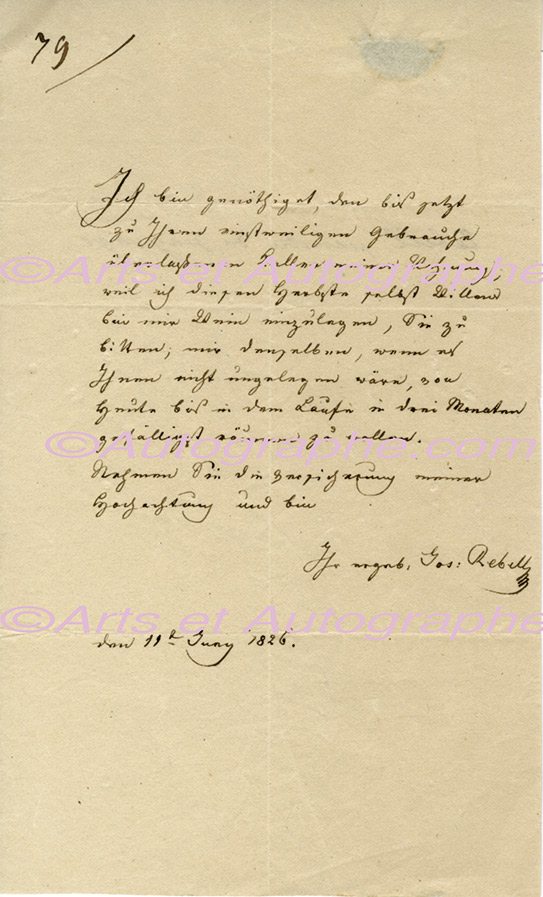 79
Ich bin genöthiget, den bis jetzt
zu Ihrem einstweiligen Gebrauche
überlaßenen Keller meiner
©Arts et Autographe
weil ich diesen Herbste selbst Willens
bin mir Wein einzulegen, Sie zu
bitten, mir denselben, wenn es
Ihnen nicht ungelegen wäre, von
Heute bis in dem Laufe in drei Monaten
gefälligst räumen zu wollen.
©Autographe.com
Nehmen Sie die Versicherung meiner
Hochachtung und bin
Ihr ergeb. Jos: Rebell
©Arts et Autographe
den 11t Juny 1826.